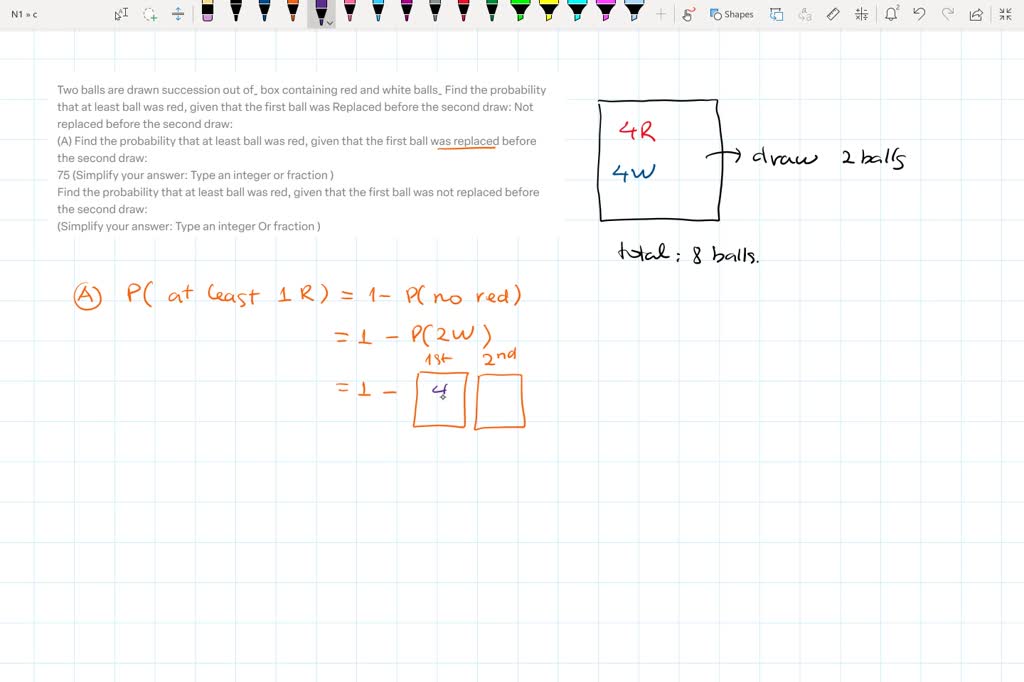 N1 » c
Shapes
2
Two balls are drawn succession out of_ box containing red and white balls_ Find the probability
that at least ball was red, given that the first ball was Replaced before the second draw: Not
replaced before the second draw:
(A) Find the probability that at least ball was red, given that the first ball was replaced before
the second draw:
75 (Simplify your answer: Type an integer or fraction )
Find the probability that at least ball was red, given that the first ball was not replaced before
the second draw:
(Simplify your answer: Type an integer Or fraction )
4R
4W
draw 2 balls
total: 8 balls.
(A) P( at least 1 R) = 1 - P(no red)
= 1 - P(2W)
1st 2nd
= 1 - 4